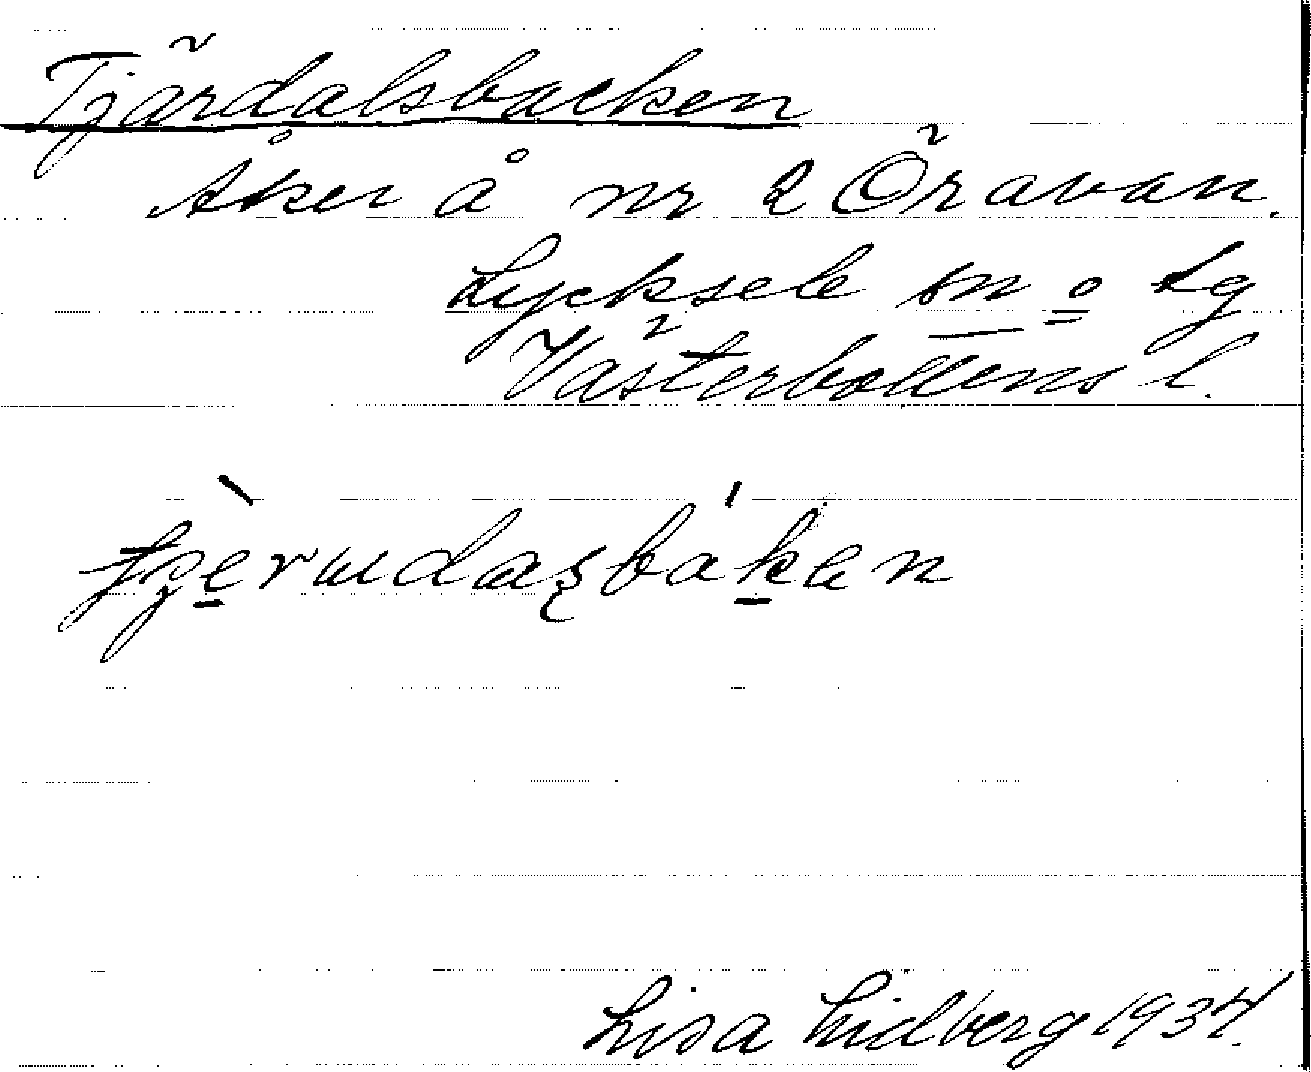 Tjärdalsbacken
Åker å nr 2 Öravan.
Lycksele sn o lg
Västerbottens l.
Lisa Lidberg 1937.